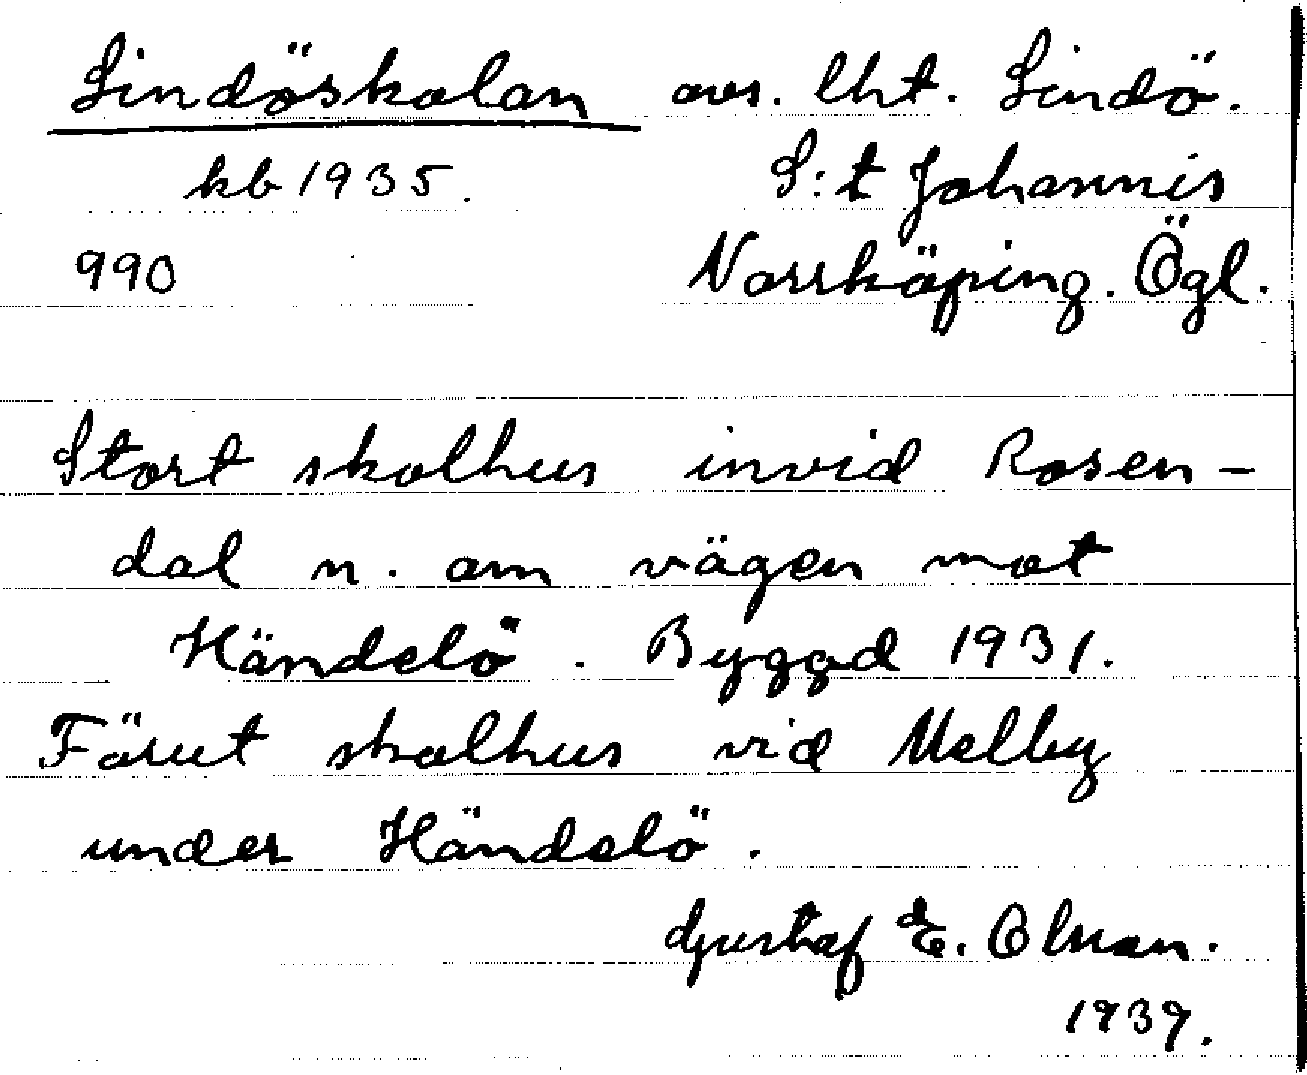 Lindöskolan avs. lht. Lindö.
kb 1935. S:t Johannis
990 Norrköping. Ögl.
Stort skolhus invid Rosen-
dal n. om vägen mot
Händelö. Byggd 1931.
Förut skolhus vid Melby
under Händelö.
Gustaf E. Olman.
1939.